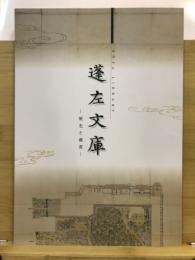 蓬左文庫
―歴史と蔵書―